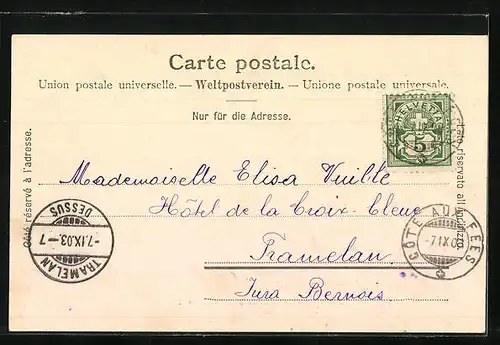 Carte postale.
Union postale universelle. — Weltpostverein. — Unione postale universale.
Nur für die Adresse.
Côté réservé à l'adresse.
Lato riservato all'indirizzo.
HELVETIA
5
Mademoiselle Elisa Vuille
Hôtel de la Croix-bleue
Tramelan
Jura Bernois
TRAMELAN
-7.IX.03.-7
DESSUS
CÔTE AUX FÉES
-7.IX.03